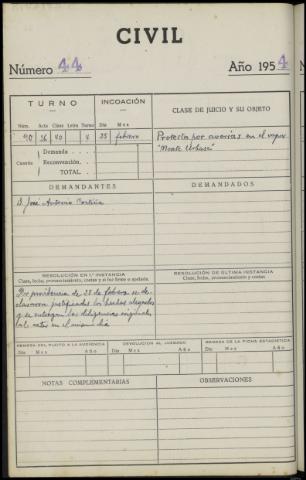 CIVIL
Número 44
Año 1954
TURNO
INCOACIÓN
CLASE DE JUICIO Y SU OBJETO
Núm. Acto Clase Letra Turno Día Mes
90 36 40 4 25 febrero
Protesta por averías en el vapor
"Monte Urbasa"
Cuantía
Demanda
Reconvención
TOTAL
DEMANDANTES
DEMANDADOS
D. José Antonio
RESOLUCIÓN EN 1.ª INSTANCIA
Clase, fecha, pronunciamiento, costas y si fué firme o apelada
RESOLUCIÓN DE ÚLTIMA INSTANCIA
Clase, fecha, pronunciamiento, costas
Por providencia de 28 de febrero se de-
clararon justificados los hechos alegados
y se entregan las diligencias originales
en el mismo día
REMESA DEL PLEITO A LA AUDIENCIA
DEVOLUCIÓN AL JUZGADO
REMESA DE LA FICHA ESTADÍSTICA
Día Mes Año
Día Mes Año
Día Mes Año
NOTAS COMPLEMENTARIAS
OBSERVACIONES